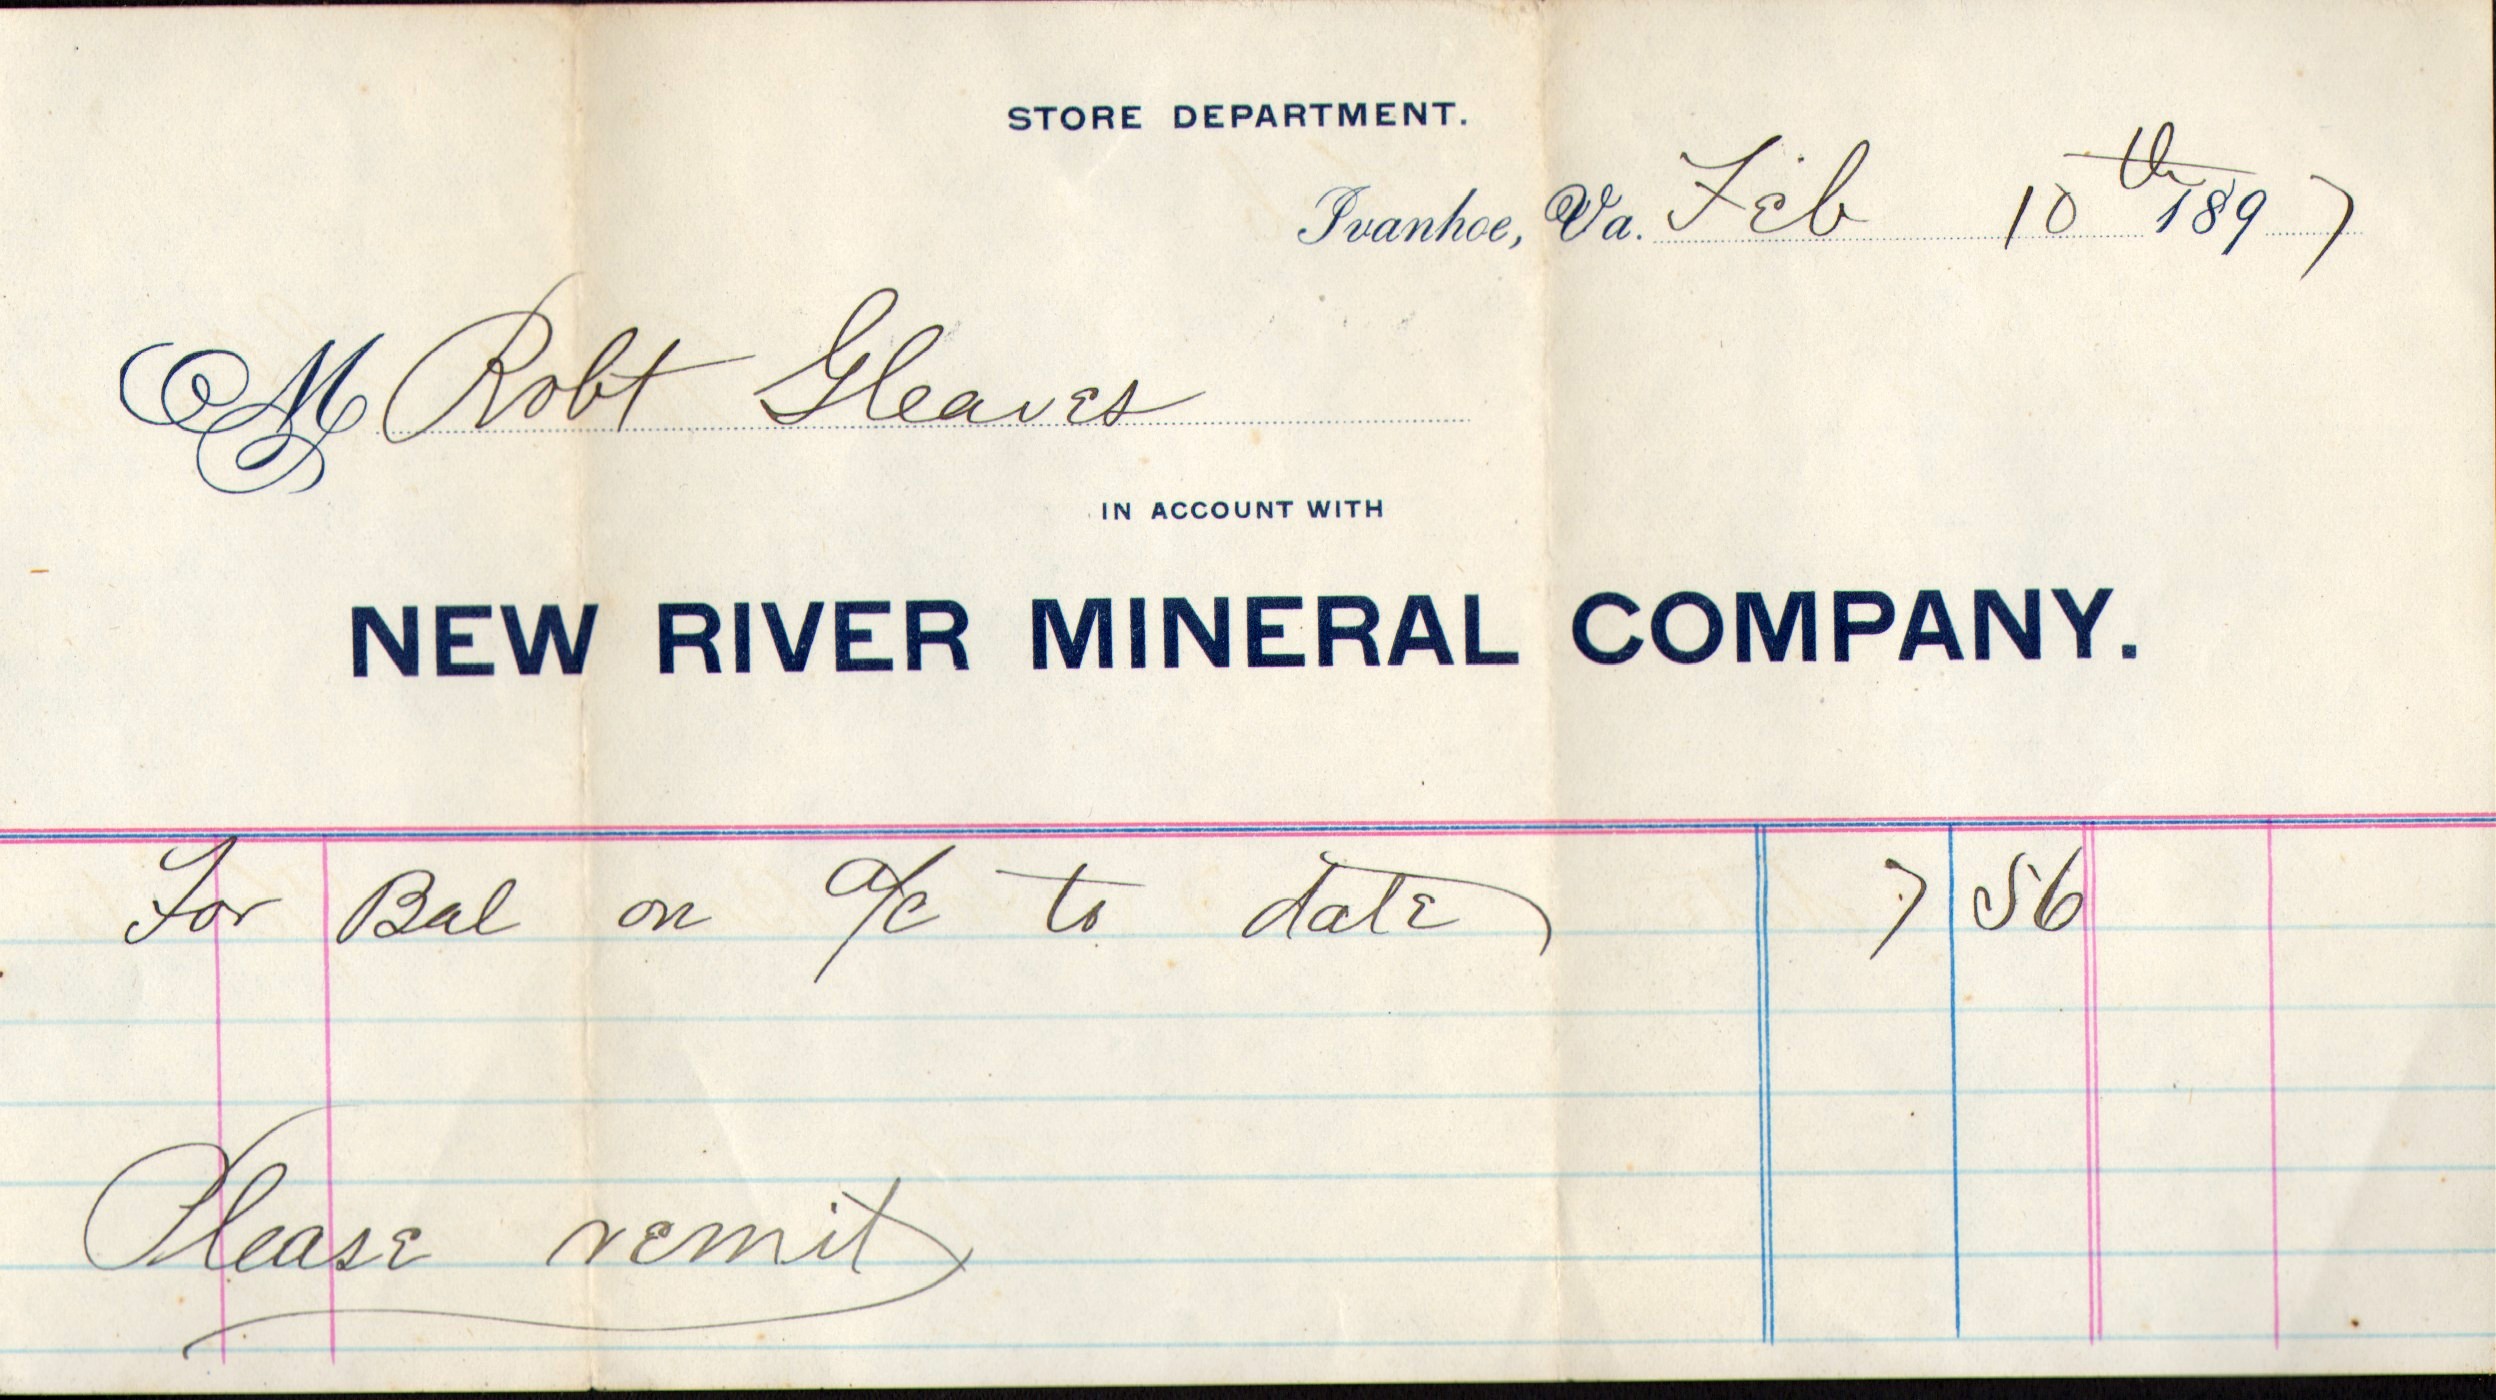 STORE DEPARTMENT.
Ivanhoe, Va. Feb 10th 1897
M Robt Gleaves
IN ACCOUNT WITH
NEW RIVER MINERAL COMPANY.
For Bal on a/c to date 7 56
Please remit